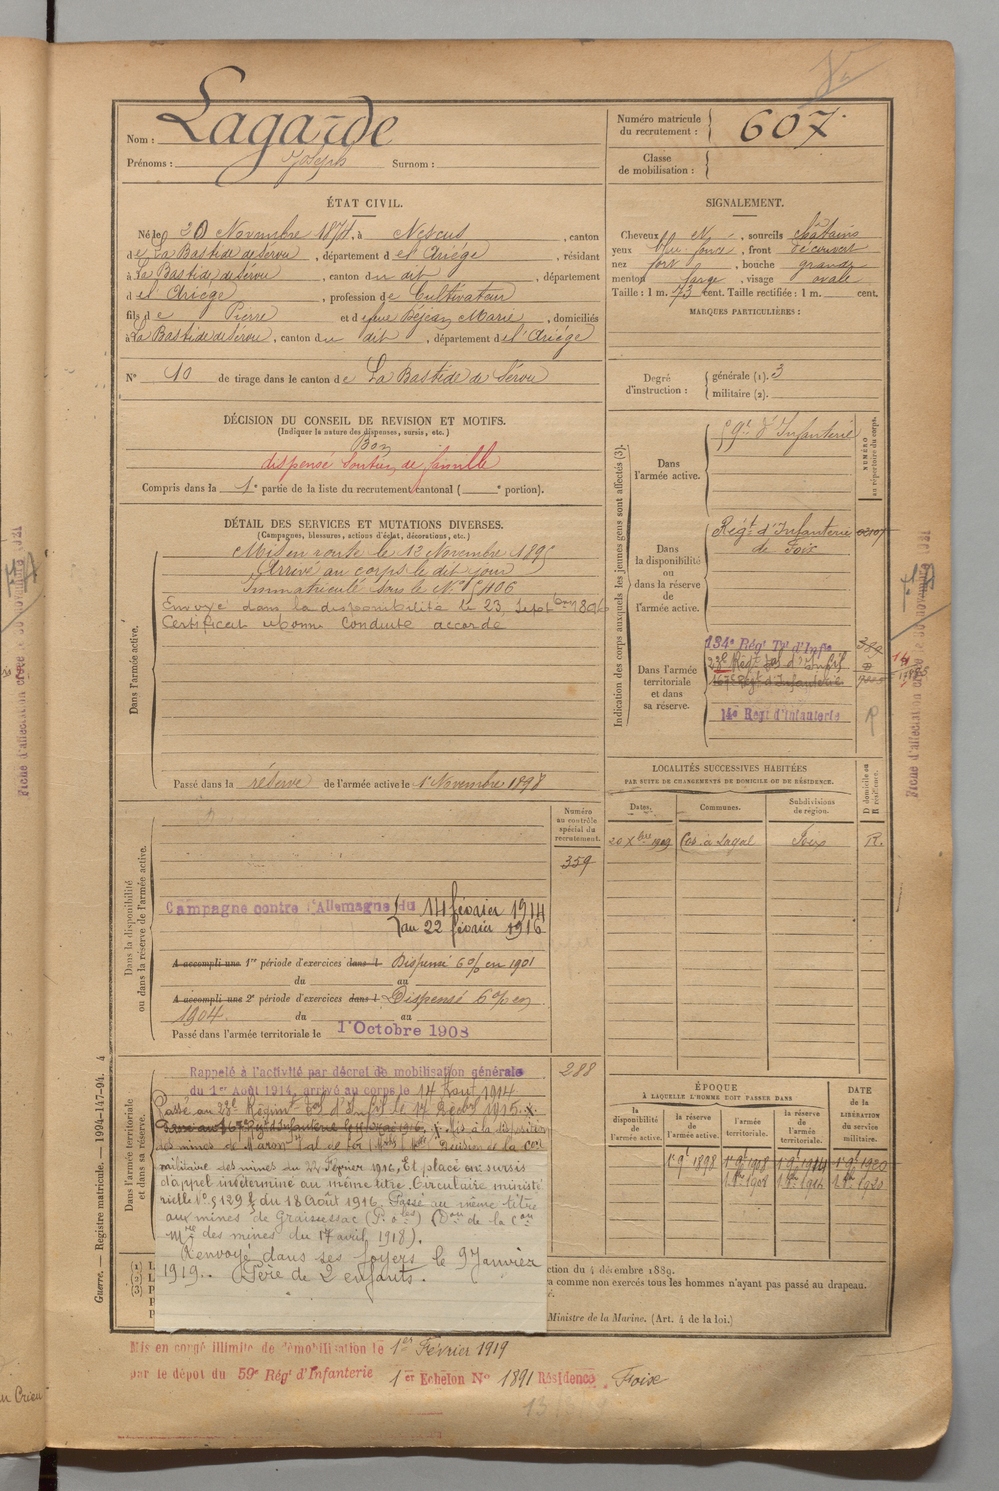 Nom : Lagarde
Prénoms : Joseph Surnom :
Numéro matricule du recrutement : 607
Classe de mobilisation :
ÉTAT CIVIL.
Né le 20 Novembre 1874, à Nescus, canton
de La Bastide de Sérou, département de l'Ariége, résidant
à La Bastide de Sérou, canton du dit, département
de l'Ariége, profession de Cultivateur
fils de Pierre et de Béjean Marie, domiciliés
à La Bastide de Sérou, canton du dit, département de l'Ariége
N° 10 de tirage dans le canton de La Bastide de Sérou
SIGNALEMENT.
Cheveux N, sourcils châtains
yeux bleu foncé, front découvert
nez fort, bouche grande
menton large, visage ovale
Taille : 1 m. 73 cent. Taille rectifiée : 1 m. cent.
MARQUES PARTICULIÈRES :
Degré d'instruction : générale (1). 3
militaire (2).
DÉCISION DU CONSEIL DE REVISION ET MOTIFS.
(Indiquer la nature des dispenses, sursis, etc.)
Bon
dispensé Soutien de famille
Compris dans la 1e partie de la liste du recrutement cantonal ( e portion).
DÉTAIL DES SERVICES ET MUTATIONS DIVERSES.
(Campagnes, blessures, actions d'éclat, décorations, etc.)
Dans l'armée active.
Mis en route le 12 Novembre 1895
Arrivé au corps le dit jour
Immatriculé sous le N° 5406
Envoyé dans la disponibilité le 23 Septbre 1896
Certificat bonne conduite accordé
Passé dans la réserve de l'armée active le 1er Novembre 1898
Indication des corps auxquels les jeunes gens sont affectés (3).
NUMÉRO au répertoire du corps.
Dans l'armée active.
59e d'Infanterie
Dans la disponibilité ou dans la réserve de l'armée active.
Régt d'Infanterie de Foix
Dans l'armée territoriale et dans sa réserve.
134e Régt Tal d'Infie
23e Régt Tal d'Infie
167e Régt d'Infanterie
14e Régt d'Infanterie
R
LOCALITÉS SUCCESSIVES HABITÉES
PAR SUITE DE CHANGEMENTS DE DOMICILE OU DE RÉSIDENCE.
Dates. Communes. Subdivisions de région. D domicile ou R résidence.
20 Xbre 1909 Foix R.
Dans la disponibilité ou dans la réserve de l'armée active.
Numéro au contrôle spécial du recrutement.
359
Campagne contre l'Allemagne du 14 février 1914
au 22 février 1916
A accompli une 1re période d'exercices dans l Dispensé 6% en 1901
du au
A accompli une 2e période d'exercices dans l Dispensé 6% en
1904 du au
Passé dans l'armée territoriale le 1er Octobre 1908
Dans l'armée territoriale et dans sa réserve.
288
Rappelé à l'activité par décret de mobilisation générale
du 1er Août 1914, arrivé au corps le 14 Août 1914
Passé au 23e Régiment Tal d'Infie le 17 1915.
militaire des mines du 22 Février 1916, Et placé en sursis
d'appel indéterminé au même titre. Circulaire ministé
rielle N° 5129 du 18 Août 1916. Passé au même titre
aux mines de Graissessac (Don de la Con
Mre des mines du 17 avril 1918).
Renvoyé dans ses foyers le 9 Janvier
1919. Père de 2 enfants.
ÉPOQUE
À LAQUELLE L'HOMME DOIT PASSER DANS
la disponibilité de l'armée active. la réserve de l'armée active. l'armée territoriale. la réserve de l'armée territoriale.
DATE de la LIBÉRATION du service militaire.
1er 9bre 1898 1er 9bre 1908 1er 9bre 1914 1er 9bre 1920
(1) L
(2) L
(3) P
ction du 4 décembre 1889.
a comme non exercés tous les hommes n'ayant pas passé au drapeau.
Ministre de la Marine. (Art. 4 de la loi.)
Mis en congé illimité de démobilisation le 1er Février 1919
par le dépot du 59e Régt d'Infanterie 1er Echelon No 1891 Résidence Foix
Guerre. — Registre matricule. — 1994-147-94. 4